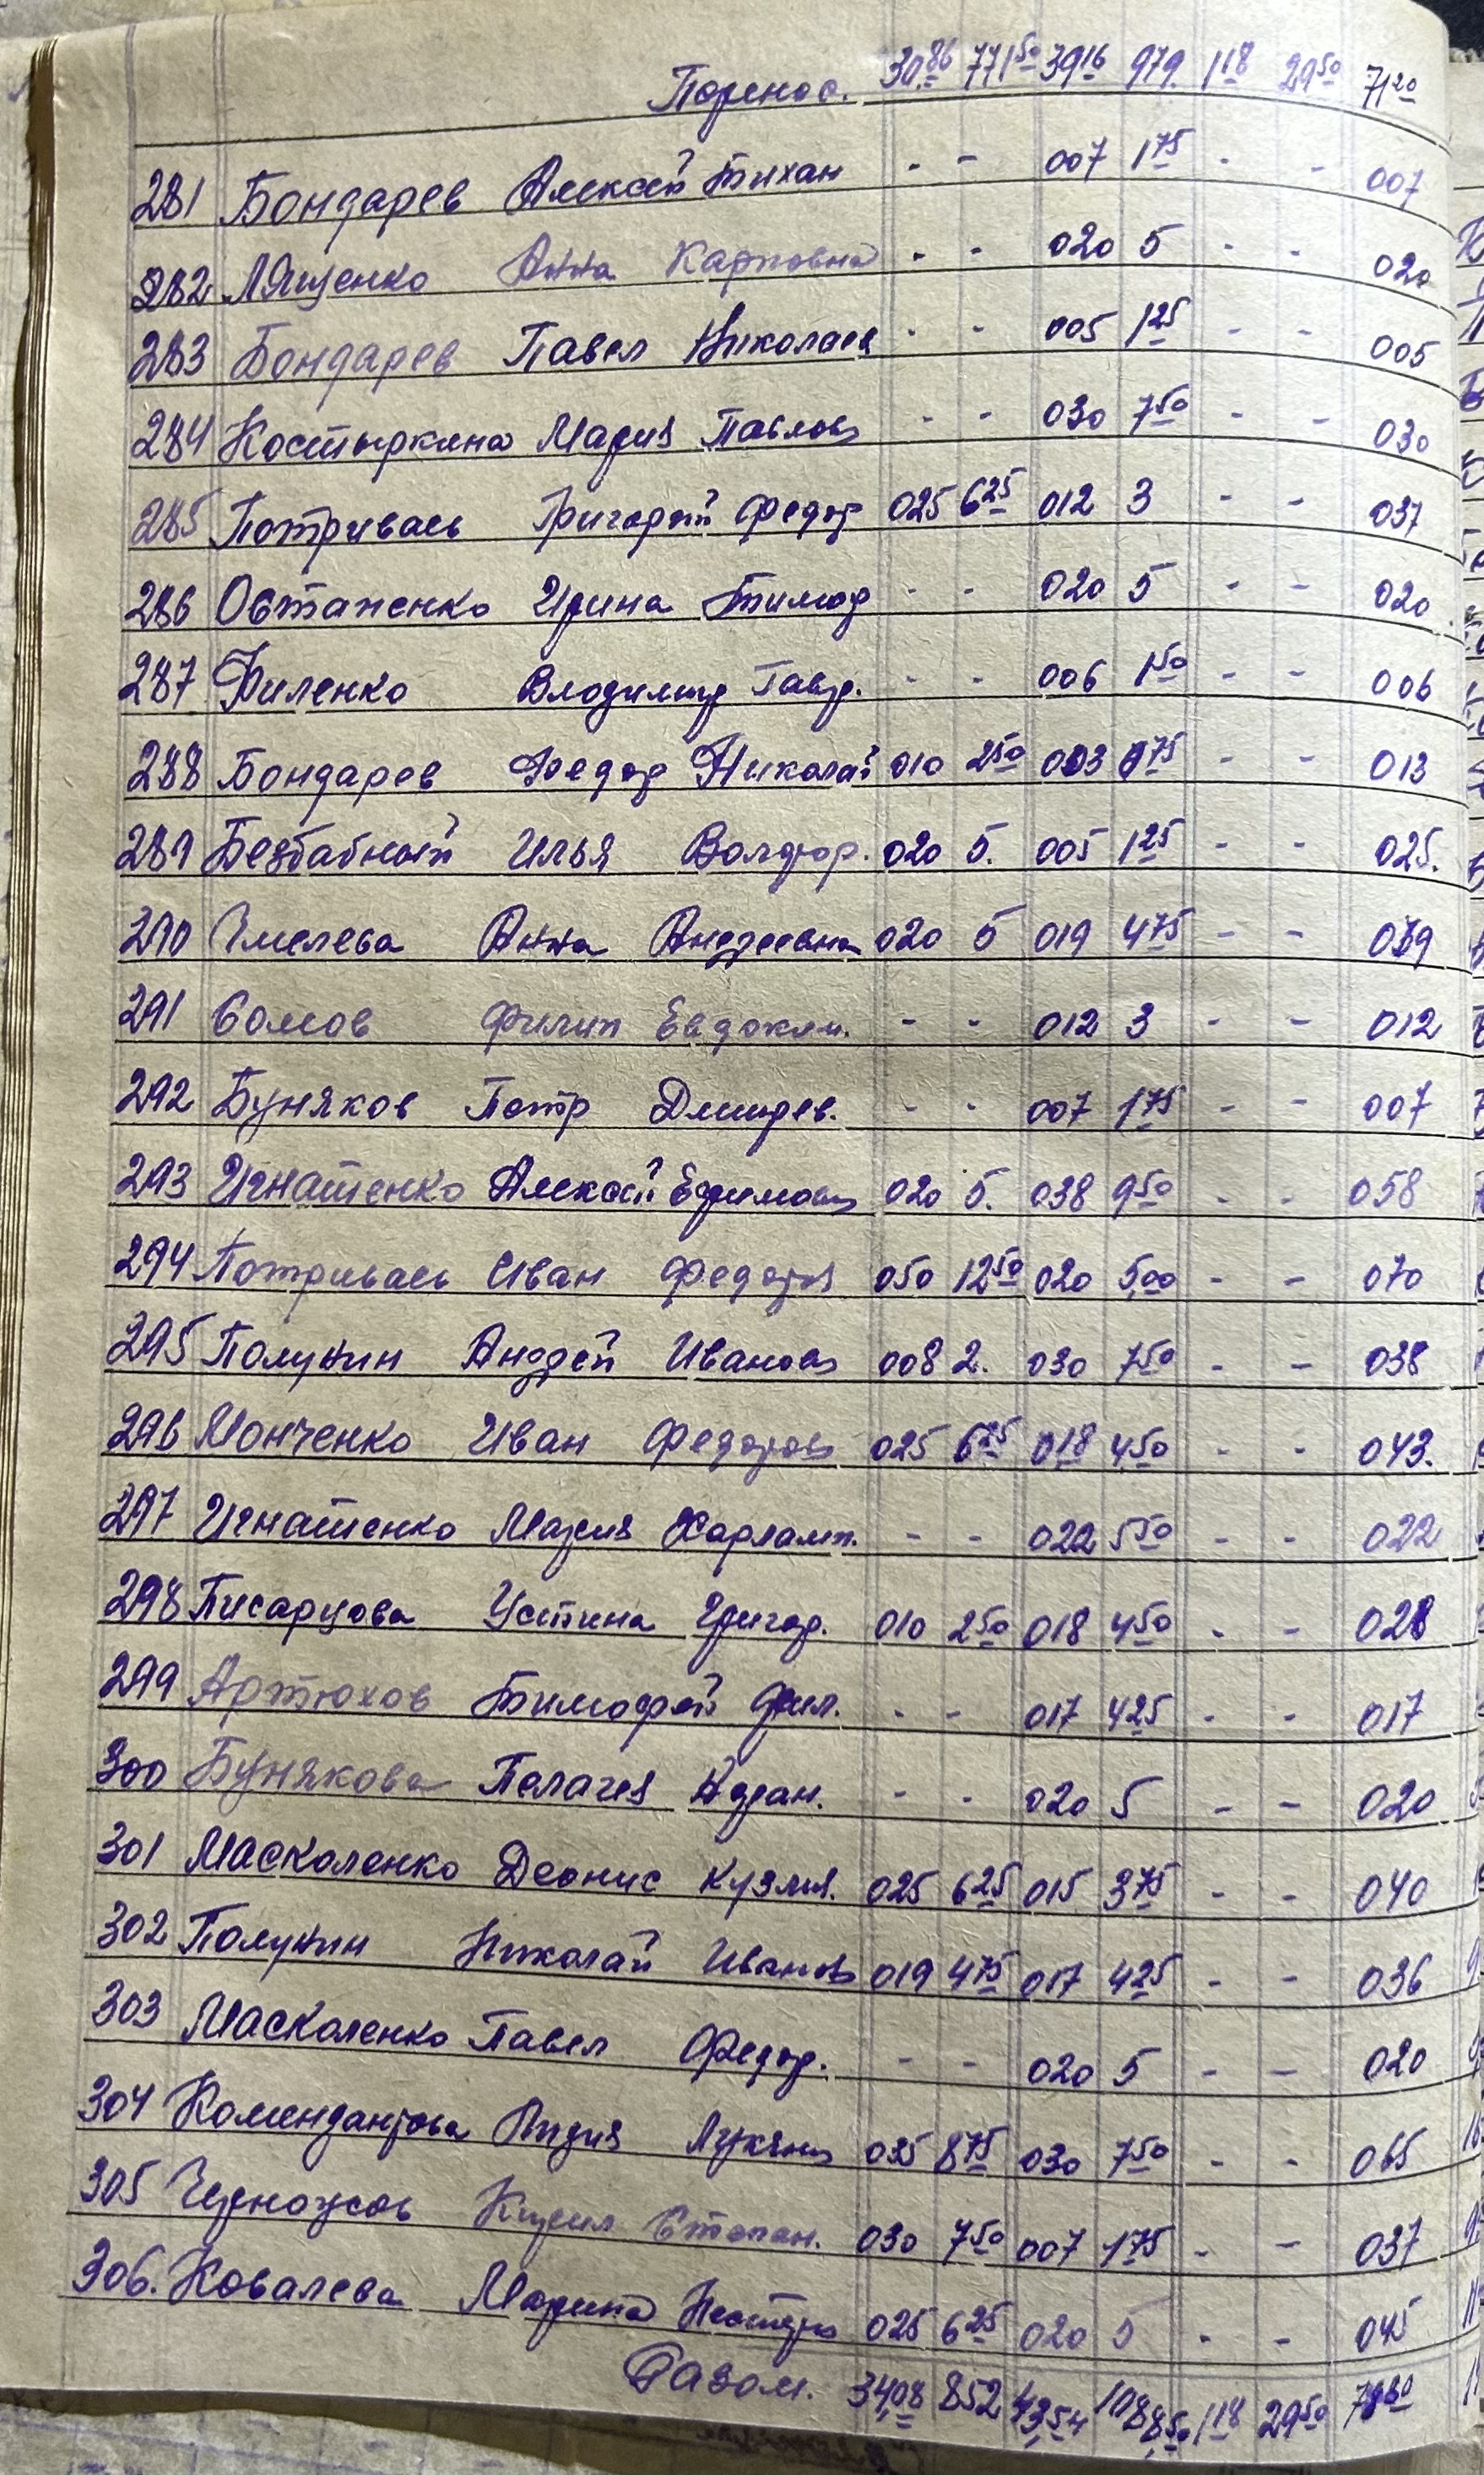 Перенос. 30.86 771 50 39 16 979. 1 18 29 50 71 20
281 Бондарев Алексей Тихан - - 007 1 75 - - 007
282 Лященко Анна Карповна - - 020 5 - - 020
283 Бондарев Павел Николаев - - 005 1 25 - - 005
284 Костыркина Мария Павлов - - 030 7 50 - - 030
285 Потривась Григорий Федор 025 6 25 012 3 - - 037
286 Остапенко Ирина Тимоф - - 020 5 - - 020
287 Филенко Владимир Гавр. - - 006 1 50 - - 006
288 Бондарев Федор Николай 010 2 50 003 0 75 - - 013
289 Безбабный Илья 020 5. 005 1 25 - - 025.
290 Чмелева Анна Андреевна 020 5 019 4 75 - - 039
291 Сомов Филип Евдоким. - - 012 3 - - 012
292 Буняков Петр Дмитрев. - - 007 1 75 - - 007
293 Игнатенко Алексей Ефимов 020 5. 038 9 50 - - 058
294 Потривась Иван Федоров 050 12 50 020 5,00 - - 070
295 Полунин Андрей Иванов 008 2. 030 7 50 - - 038
296 Монченко Иван Федоров 025 6 25 018 4 50 - - 043.
297 Игнатенко Мария Харламп. - - 022 5 50 - - 022
298 Писарцова Устина Григор. 010 2 50 018 4 50 - - 028
299 Артюхов Тимофей Фил. - - 017 4 25 - - 017
300 Бунякова Пелагея Адриан. - - 020 5 - - 020
301 Масколенко Деонис Кузмич. 025 6 25 015 3 75 - - 040
302 Полунин Николай Иванов 019 4 75 017 4 25 - - 036
303 Масколенко Павел Федор. - - 020 5 - - 020
304 Комендантова Лидия Лукянов 035 8 75 030 7 50 - - 065
305 Черноусов Кирил Степан. 030 7 50 007 1 75 - - 037
306. Ковалева Марина 025 6 25 020 5 - - 045
Разом. 34,08 852 43,54 1088,50 1 18 29 50 78 80